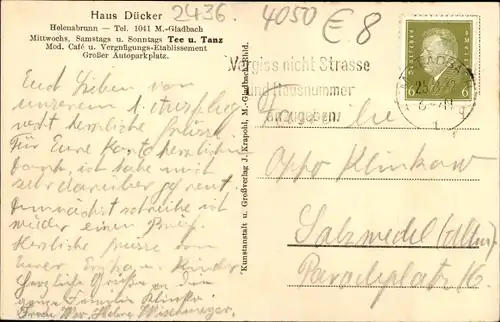 Haus Dücker
Helenabrunn — Tel. 1041 M.-Gladbach
Mittwochs, Samstags u. Sonntags Tee u. Tanz
Mod. Café u. Vergnügungs-Etablissement
Großer Autoparkplatz.
2436.
4050
E8
Vergiss nicht Strasse
und Hausnummer
anzugeben!
Deutsches Reich
6 6
Euch Lieben von
unserem 1. Ausflug
recht herzliche Grüsse
Für Eure Karte herzlichen
Dank, ich habe mich
sehr darüber gefreut.
Demnächst schreibe ich
wieder einen Brief.
Herzliche Grüsse von
Eurer Kinder
Herzliche Grüße an die
ganze Familie Klinko
Frau Wwe. Helene
Kunstanstalt u. Großverlag J. Krapohl, M.-Gladbach-Rhld.
Familie
Otto Klinkow
Salzwedel (Altm.)
Paradeplatz 16.